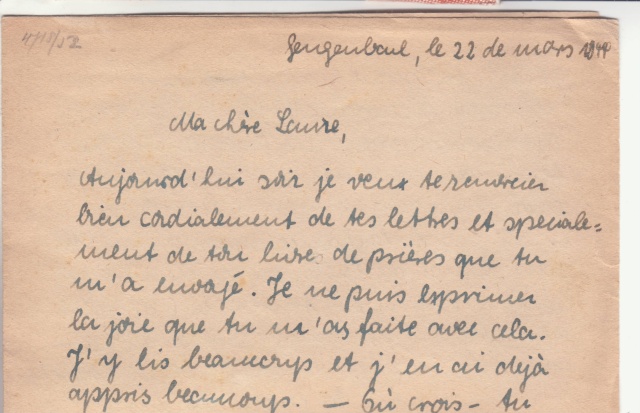 4/18/52
Gengenbach, le 22 de mars 1944
Ma chère Laure,
Aujourd'hui soir je veux te remercier
bien cordialement de tes lettres et speciale=
ment de ton livre de prières que tu
m'a envoyé. Je ne puis exprimer
la joie que tu m'as faite avec cela.
J'y lis beaucoup et j'en ai dejà
appris beaucoup. — crois – tu